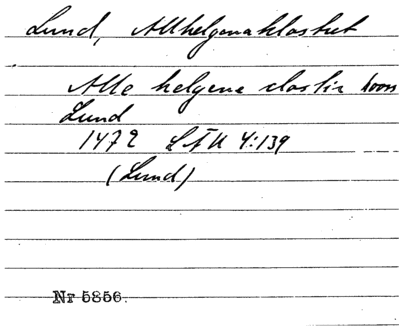 Lund, Allhelgonaklostret
Alle helgena closter hooss
Lund
1472 LÄU 4:139
(Lund)
Nr 5856.